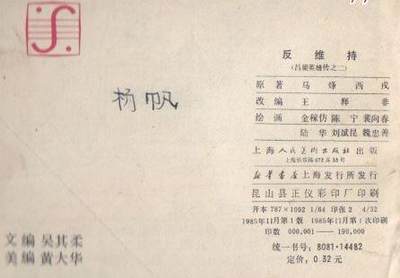 杨帆
文编 吴其柔
美编 黄大华
反维持
(吕梁英雄传之二)
原著 马烽 西戎
改编 王释非
绘画 金稼仿 陈宁 冀向春
陆华 刘斌昆 魏忠善
上海人民美术出版社出版
上海长乐路672弄33号
新华书店上海发行所发行
昆山县正仪彩印厂印刷
开本 787×1092 1/64 印张 2 4/32
1985年11月第1版 1985年11月第1次印刷
印数 000,001—190,000
统一书号：8081·14482
定价：0.32元